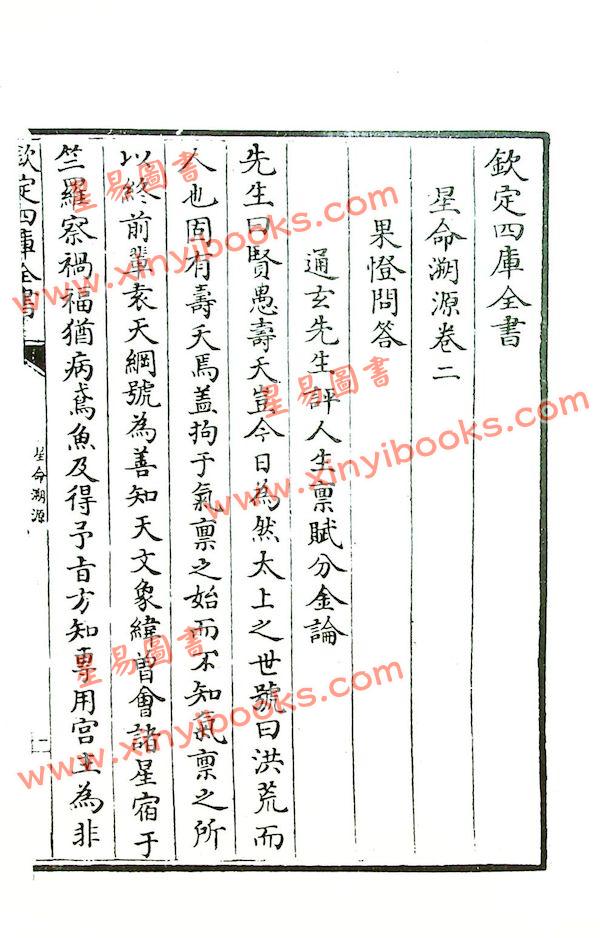 欽定四庫全書
星命溯源卷二
果憕問答
通玄先生評人生禀賦分金論
先生曰賢愚壽夭豈今日為然太上之世號曰洪荒而
人也固有壽夭焉蓋拘于氣禀之始而不知氣禀之所
以終前輩袁天綱號為善知天文象緯曽會諸星宿于
竺羅察禍福猶病鳶魚及得予㫖方知專用宫主為非
欽定四庫全書
星命溯源
一
星易圖書
www.xinyibooks.com
星易圖書
www.xinyibooks.com
星易圖書
www.xinyibooks.com